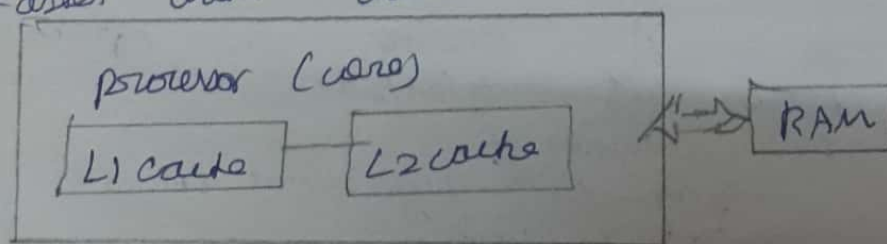 processor (core)
L1 cache L2 cache
RAM